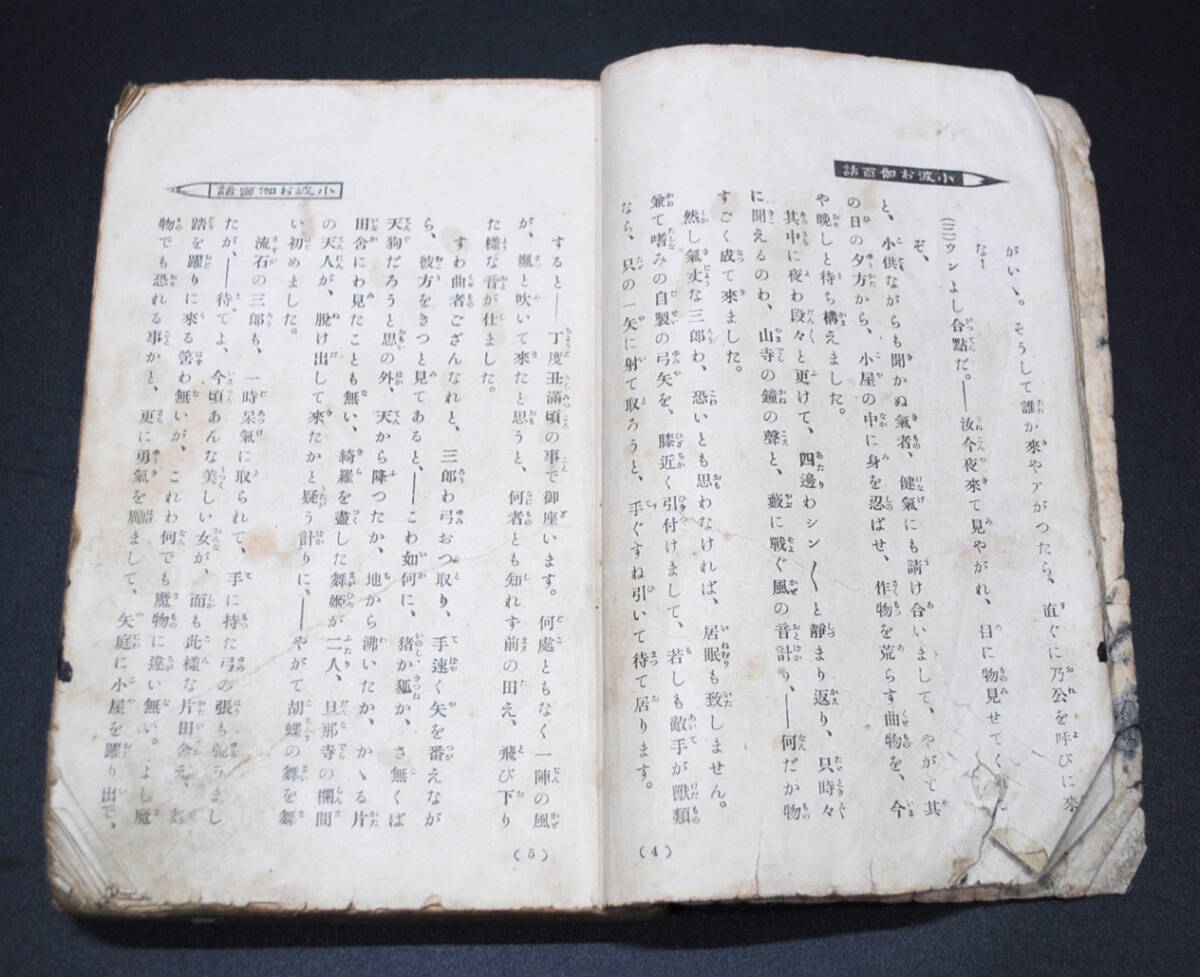 小波お伽百話
がいゝ。そうして誰か來やァがつたら、直ぐに乃公を呼びに來
な｜
(三)ウンよし合點だ。――汝今夜來て見やがれ、目に物見せてくれ
ぞ、
と、小供ながらも聞かぬ氣者、健氣にも請け合いまして、やがて其
の日の夕方から、小屋の中に身を忍ばせ、作物を荒らす曲物を、今
や晩しと待ち構えました。
其中に夜わ段々と更けて、四邊わシン〱と靜まり返り、只時々
に聞えるのわ、山寺の鐘の聲と、藪に戰ぐ風の音計り、――何だか物
すごく成て來ました。
然し氣丈な三郎わ、恐いとも思わなければ、居眠も致しません。
兼て嗜みの自製の弓矢を、膝近く引付けまして、若しも敵手が獸類
なら、只の一矢に射て取ろうと、手ぐすね引いて待て居ります。
(4)
小波お伽百話
すると――丁度丑滿頃の事で御座います。何處ともなく一陣の風
が、颯と吹いて來たと思うと、何者とも知れず前の田え、飛び下り
た樣な音が仕ました。
すわ曲者ござんなれと、三郎わ弓おつ取り、手速く矢を番えなが
ら、彼方をきつと見てあると、――こわ如何に、猪か狐か、さ無くば
天狗だろうと思の外、天から降つたか、地から沸いたか、かゝる片
田舎にわ見たことも無い、綺羅を盡した舞姬が二人、旦那寺の欄間
の天人が、脫け出して來たかと疑う計りに、――やがて胡蝶の舞を舞
い初めました。
流石の三郎も、一時呆氣に取られて、手に持た弓の張も弛うまし
たが、――待てよ、今頃あんな美しい女が、而も此樣な片田舍え、
踏を躍りに來る筈わ無いが、これわ何でも魔物に違い無い。よし魔
物でも恐れる事かと、更に勇氣を勵まして、矢庭に小屋を躍り出で、
(5)